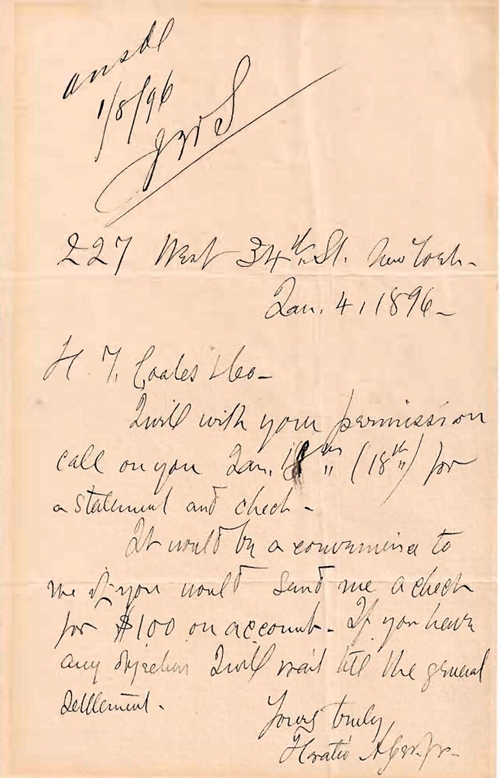 ansd
1/8/96
227 West 34th St. New York -
Jan. 4, 1896 -
H. T. Coates & Co -
I will with your permission
call on you Jan. 18th (18th) for
a statement and check -
It would be a convenience to
me if you would send me a check
for $100 on account - If you have
any objection I will wait till the general
settlement.
Yours truly,
Horatio Alger Jr -